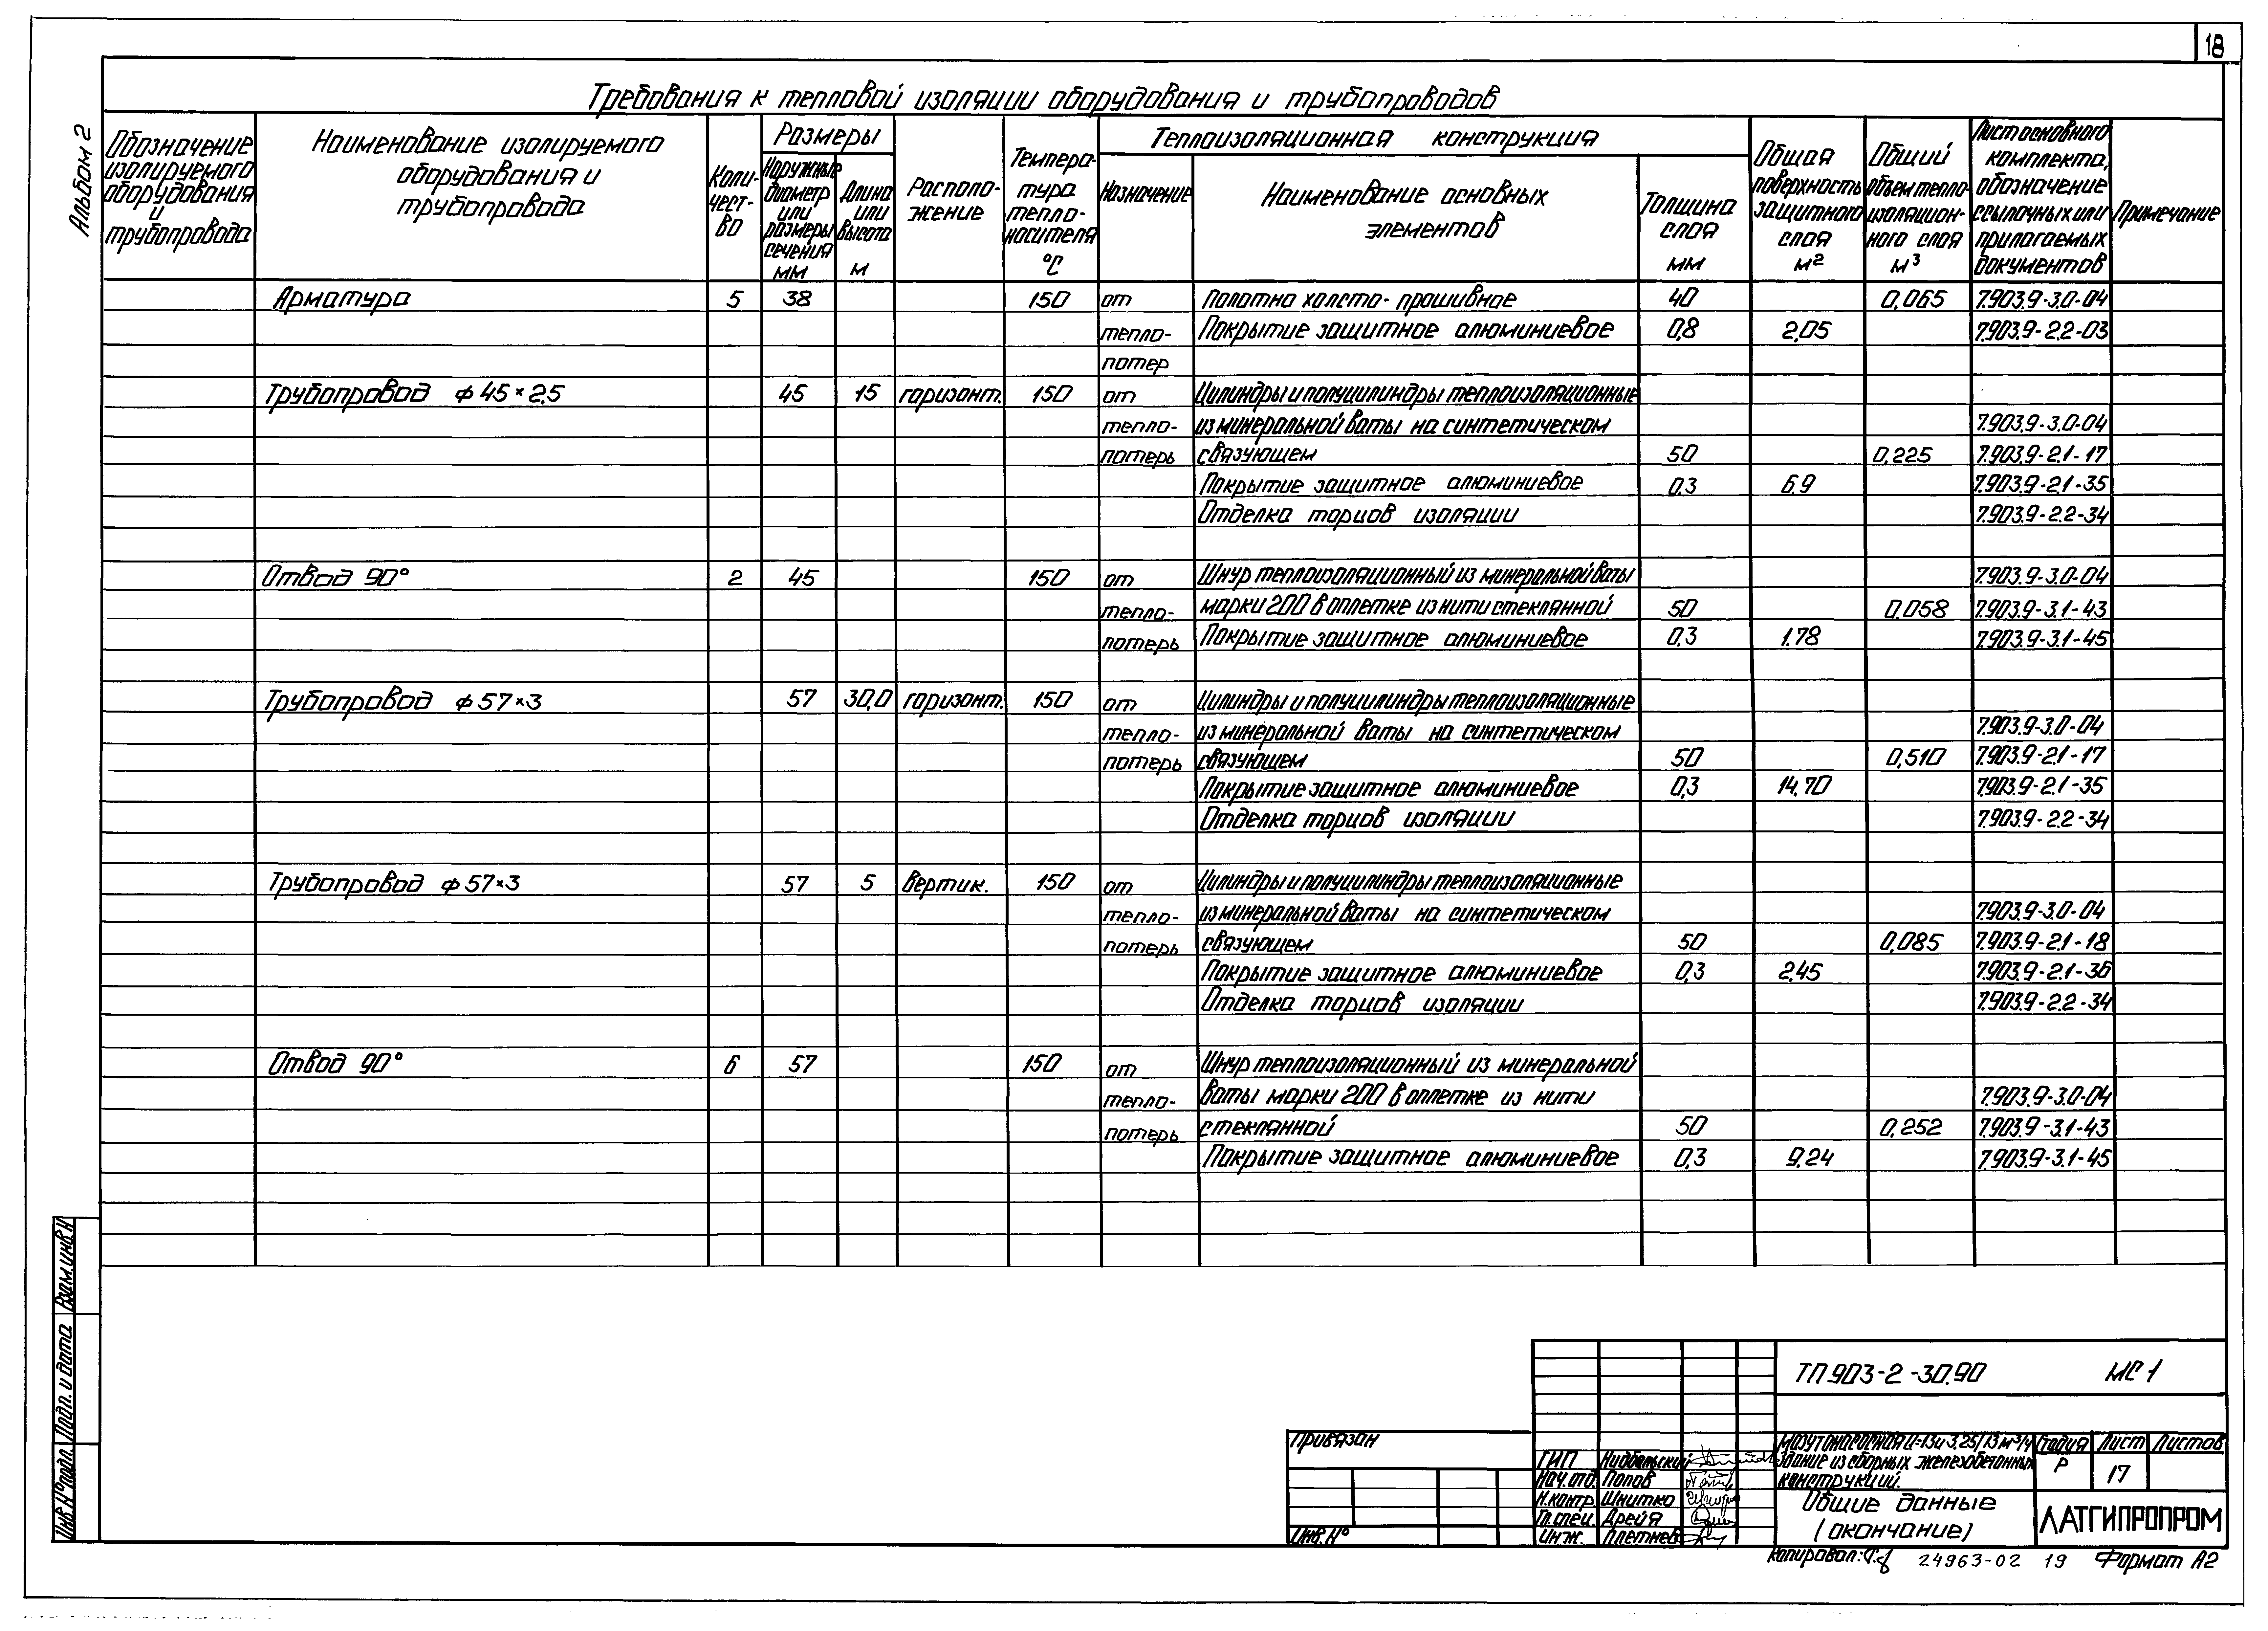 18
Альбом 2
Требования к тепловой изоляции оборудования и трубопроводов
Обозначение изолируемого оборудования и трубопровода
Наименование изолируемого оборудования и трубопровода
Количест-во
Размеры
Наружные диаметр или размеры сечения мм
Длина или высота м
Располо-жение
Темпера-тура тепло-носителя °С
Теплоизоляционная конструкция
Назначение
Наименование основных элементов
Толщина слоя мм
Общая поверхность защитного слоя м²
Общий объем тепло-изоляцион-ного слоя м³
Лист основного комплекта, обозначение ссылочных или прилагаемых документов
Примечание
Арматура 5 38 150 от Полотно холсто-прошивное 40 0,065 7.903.9-3.0-04
тепло- Покрытие защитное алюминиевое 0,8 2,05 7.903.9-2.2-03
потер
Трубопровод ф 45×2,5 45 15 горизонт. 150 от Цилиндры и полуцилиндры теплоизоляционные
тепло- из минеральной ваты на синтетическом 7.903.9-3.0-04
потерь связующем 50 0.225 7.903.9-2.1-17
Покрытие защитное алюминиевое 0,3 6.9 7.903.9-2.1-35
Отделка торцов изоляции 7.903.9-2.2-34
Отвод 90° 2 45 150 от Шнур теплоизоляционный из минеральной ваты 7.903.9-3.0-04
тепло- марки 200 в оплетке из нити стеклянной 50 0.058 7.903.9-3.1-43
потерь Покрытие защитное алюминиевое 0,3 1.78 7.903.9-3.1-45
Трубопровод ф 57×3 57 30,0 горизонт. 150 от Цилиндры и полуцилиндры теплоизоляционные
тепло- из минеральной ваты на синтетическом 7.903.9-3.0-04
потерь связующем 50 0,510 7.903.9-2.1-17
Покрытие защитное алюминиевое 0,3 14,70 7.903.9-2.1-35
Отделка торцов изоляции 7.903.9-2.2-34
Трубопровод ф 57×3 57 5 вертик. 150 от Цилиндры и полуцилиндры теплоизоляционные
тепло- из минеральной ваты на синтетическом 7.903.9-3.0-04
потерь связующем 50 0,085 7.903.9-2.1-18
Покрытие защитное алюминиевое 0,3 2,45 7.903.9-2.1-36
Отделка торцов изоляции 7.903.9-2.2-34
Отвод 90° 6 57 150 от Шнур теплоизоляционный из минеральной
тепло- ваты марки 200 в оплетке из нити 7.903.9-3.0-04
потерь стеклянной 50 0,252 7.903.9-3.1-43
Покрытие защитное алюминиевое 0,3 9,24 7.903.9-3.1-45
Взам.инв.N
Подп. и дата
Инв.N°подл.
Привязан
Инв.N°
ТП 903-2-30.90 МС 1
ГИП Нидбальский
Нач.отд. Попов
Н.контр. Шнитко
Гл.спец. Дрейя
Инж. Плетнев
Мазутонасосная Q=13и3,25/13 м³/ч
Здание из сборных железобетонных
конструкций.
Стадия Лист Листов
Р 17
Общие данные
(окончание)
ЛАТГИПРОПРОМ
Копировал: 24963-02 19 Формат А2